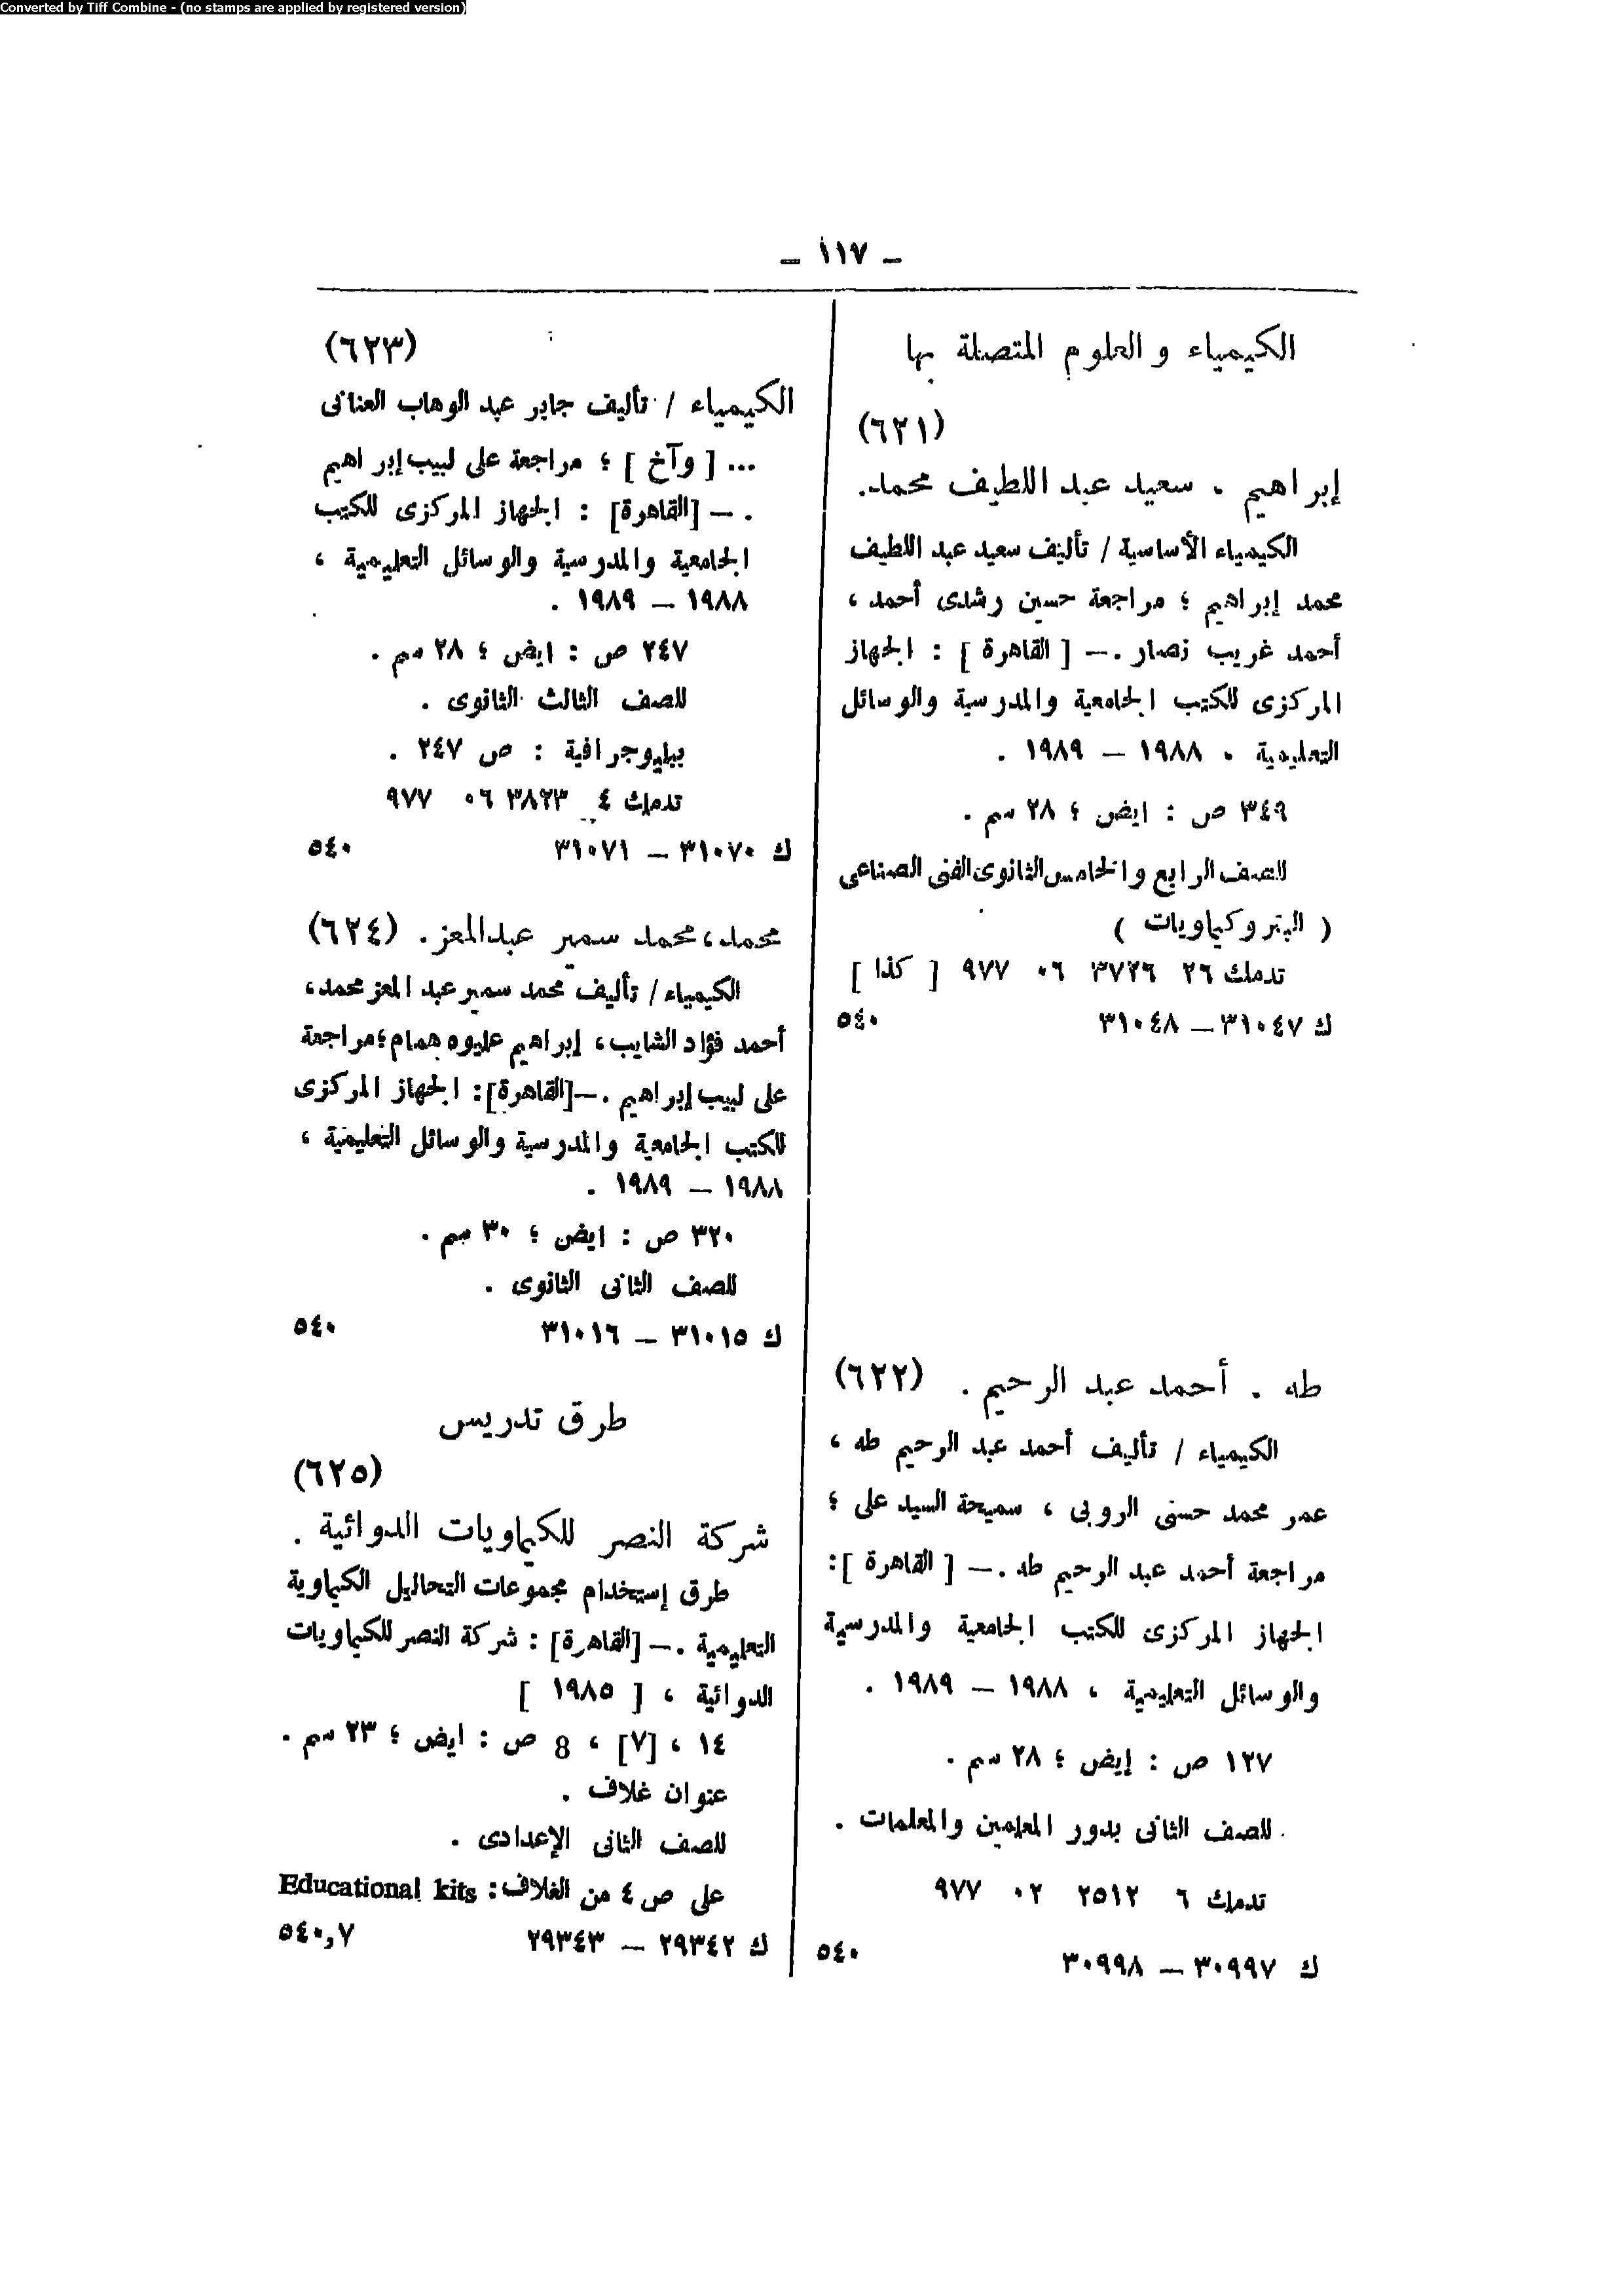 Converted by Tiff Combine - (no stamps are applied by registered version)
— ١١٧ —
الكيمياء والعلوم المتصلة بها
(٦٢١)
إبراهيم . سعيد عبد اللطيف محمد.
الكيمياء الأساسية / تأليف سعيد عبد اللطيف
محمد إبراهيم ؛ مراجعة حسين رشدى أحمد ،
أحمد غريب نصار .— [ القاهرة ] : الجهاز
المركزى للكتب الجامعية والمدرسية والوسائل
التعليمية . ١٩٨٨ — ١٩٨٩ .
٣٤٩ ص : ايض ؛ ٢٨ سم .
للصف الرابع والخامس الثانوى الفنى الصناعى
( البتروكيماويات )
تدمك ٢٦ ٣٧٢٦ ٠٦ ٩٧٧ [ كذا ]
ك ٣١٠٤٧ — ٣١٠٤٨ ٥٤٠
طه . أحمد عبد الرحيم . (٦٢٢)
الكيمياء / تأليف أحمد عبد الرحيم طه ،
عمر محمد حسنى الروبى ، سميحة السيد على ؛
مراجعة أحمد عبد الرحيم طه .— [ القاهرة ]:
الجهاز المركزى للكتب الجامعية والمدرسية
والوسائل التعليمية ، ١٩٨٨ — ١٩٨٩ .
١٢٧ ص : إيض ؛ ٢٨ سم .
للصف الثانى بدور المعلمين والمعلمات .
تدمك ٦ ٢٥١٢ ٠٢ ٩٧٧
ك ٣٠٩٩٧ — ٣٠٩٩٨ ٥٤٠
(٦٢٣)
الكيمياء / تأليف جابر عبد الوهاب العنانى
... [ وآخ ] ؛ مراجعة على لبيب إبراهيم
. — [القاهرة] : الجهاز المركزى للكتب
الجامعية والمدرسية والوسائل التعليمية ،
١٩٨٨ — ١٩٨٩ .
٢٤٧ ص : ايض ؛ ٢٨ سم .
للصف الثالث الثانوى .
ببليوجرافية : ص ٢٤٧ .
تدمك ٤ ٣٨٢٣ ٠٦ ٩٧٧
ك ٣١٠٧٠ — ٣١٠٧١ ٥٤٠
محمد، محمد سمير عبدالمعز. (٦٢٤)
الكيمياء / تأليف محمد سمير عبد المعز محمد،
أحمد فؤاد الشايب، إبراهيم عليوه همام؛ مراجعة
على لبيب إبراهيم .—[القاهرة]: الجهاز المركزى
للكتب الجامعية والمدرسية والوسائل التعليمية ،
١٩٨٨ — ١٩٨٩ .
٣٢٠ ص : ايض ؛ ٣٠ سم .
للصف الثانى الثانوى .
ك ٣١٠١٥ — ٣١٠١٦ ٥٤٠
طرق تدريس
(٦٢٥)
شركة النصر للكيماويات الدوائية .
طرق إستخدام مجموعات التحاليل الكيماوية
التعليمية .— [القاهرة] : شركة النصر للكيماويات
الدوائية ، [ ١٩٨٥ ]
١٤ ، [٧] ، 8 ص : ايض ؛ ٢٣ سم .
عنوان غلاف .
للصف الثانى الإعدادى .
على ص ٤ من الغلاف: Educational kits
ك ٢٩٣٤٢ — ٢٩٣٤٣ ٥٤٠,٧